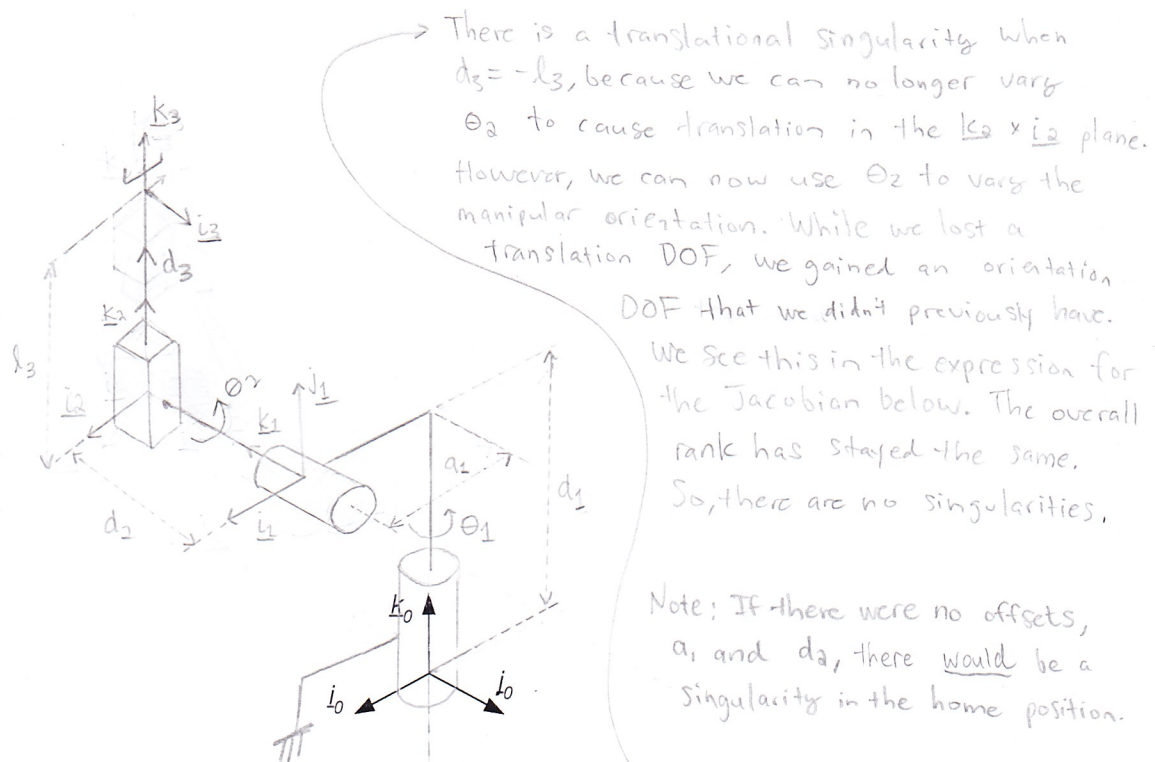 There is a translational singularity when
d3 = -l3, because we can no longer vary
θ2 to cause translation in the k2 × i2 plane.
However, we can now use θ2 to vary the
manipular orientation. While we lost a
translation DOF, we gained an orientation
DOF that we didn't previously have.
We see this in the expression for
the Jacobian below. The overall
rank has stayed the same.
So, there are no singularities.
Note: If there were no offsets,
a1 and d2, there would be a
singularity in the home position.
k3
i3
d3
k2
l3
i2
θ2
j1
k1
a1
d1
d2
i1
θ1
k0
i0
j0